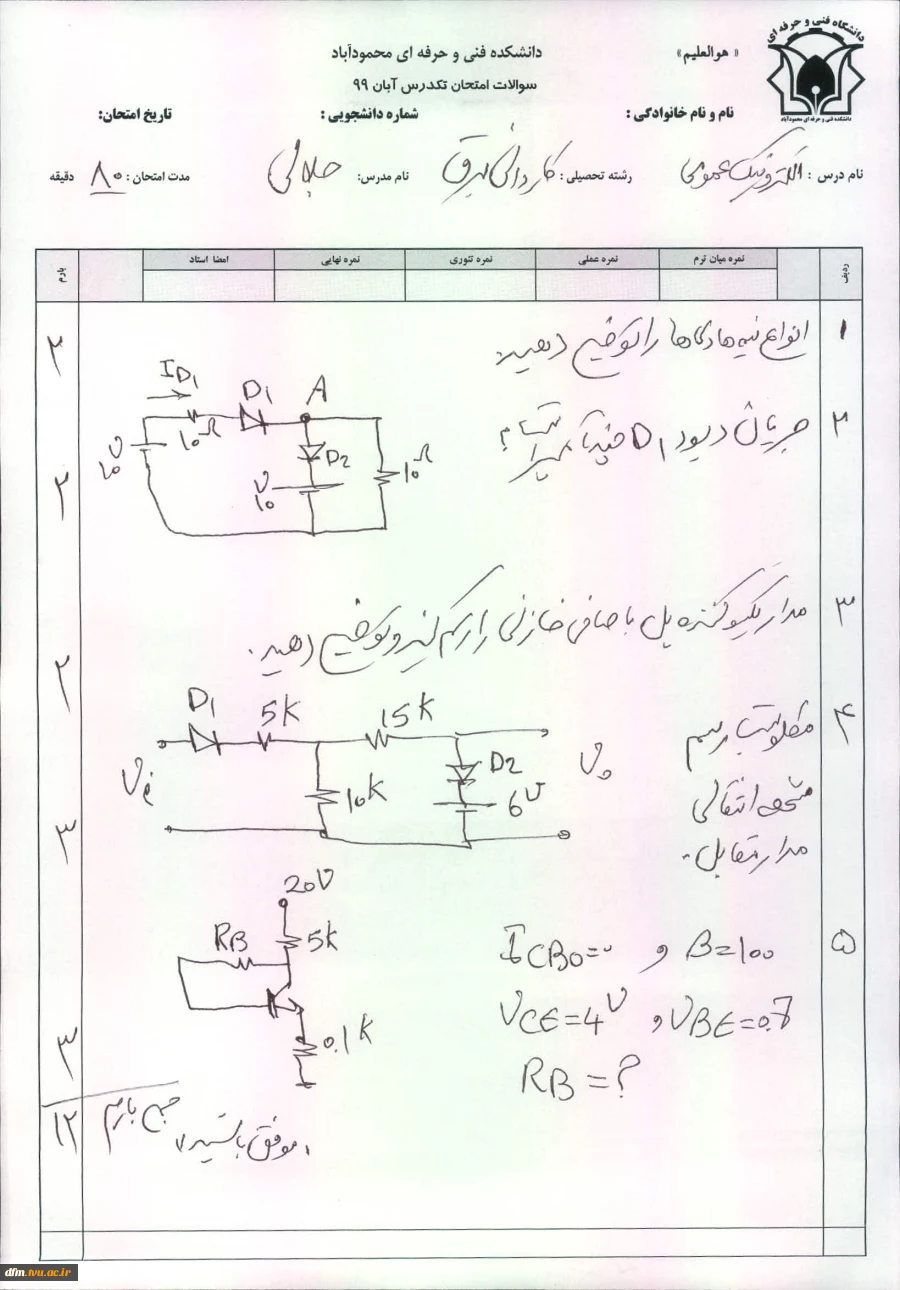 دانشگاه فنی و حرفه ای
دانشکده فنی و حرفه ای محمودآباد
« هوالعلیم»
دانشکده فنی و حرفه ای محمودآباد
سوالات امتحان تکدرس آبان ۹۹
نام و نام خانوادگی :
شماره دانشجویی :
تاریخ امتحان:
نام درس : الکترونیک عمومی
رشته تحصیلی : کاردانی برق
نام مدرس: جلالی
مدت امتحان : ۸۰ دقیقه
ردیف
نمره میان ترم
نمره عملی
نمره تئوری
نمره نهایی
امضا استاد
بارم
۱ انواع نیمه هادی ها را توضیح دهید. ۲
۲ جریان دیود D1 چند آمپر است؟ ۲
ID1
D1
A
10Ω
10V
D2
10V
10Ω
۳ مدار یکسو کننده پل با صافی خازنی را رسم کنید و توضیح دهید. ۲
۴ مطلوبست رسم
مشخصه انتقالی
مدار مقابل. ۳
D1
5K
15K
Vi
10K
D2
6V
Vo
۵ ICBO=۰ و B=100
VCE=4V و VBE=0.7
RB=?
۳
20V
RB
5K
0.1K
جمع بارم ۱۲
موفق باشید
dfm.tvu.ac.ir